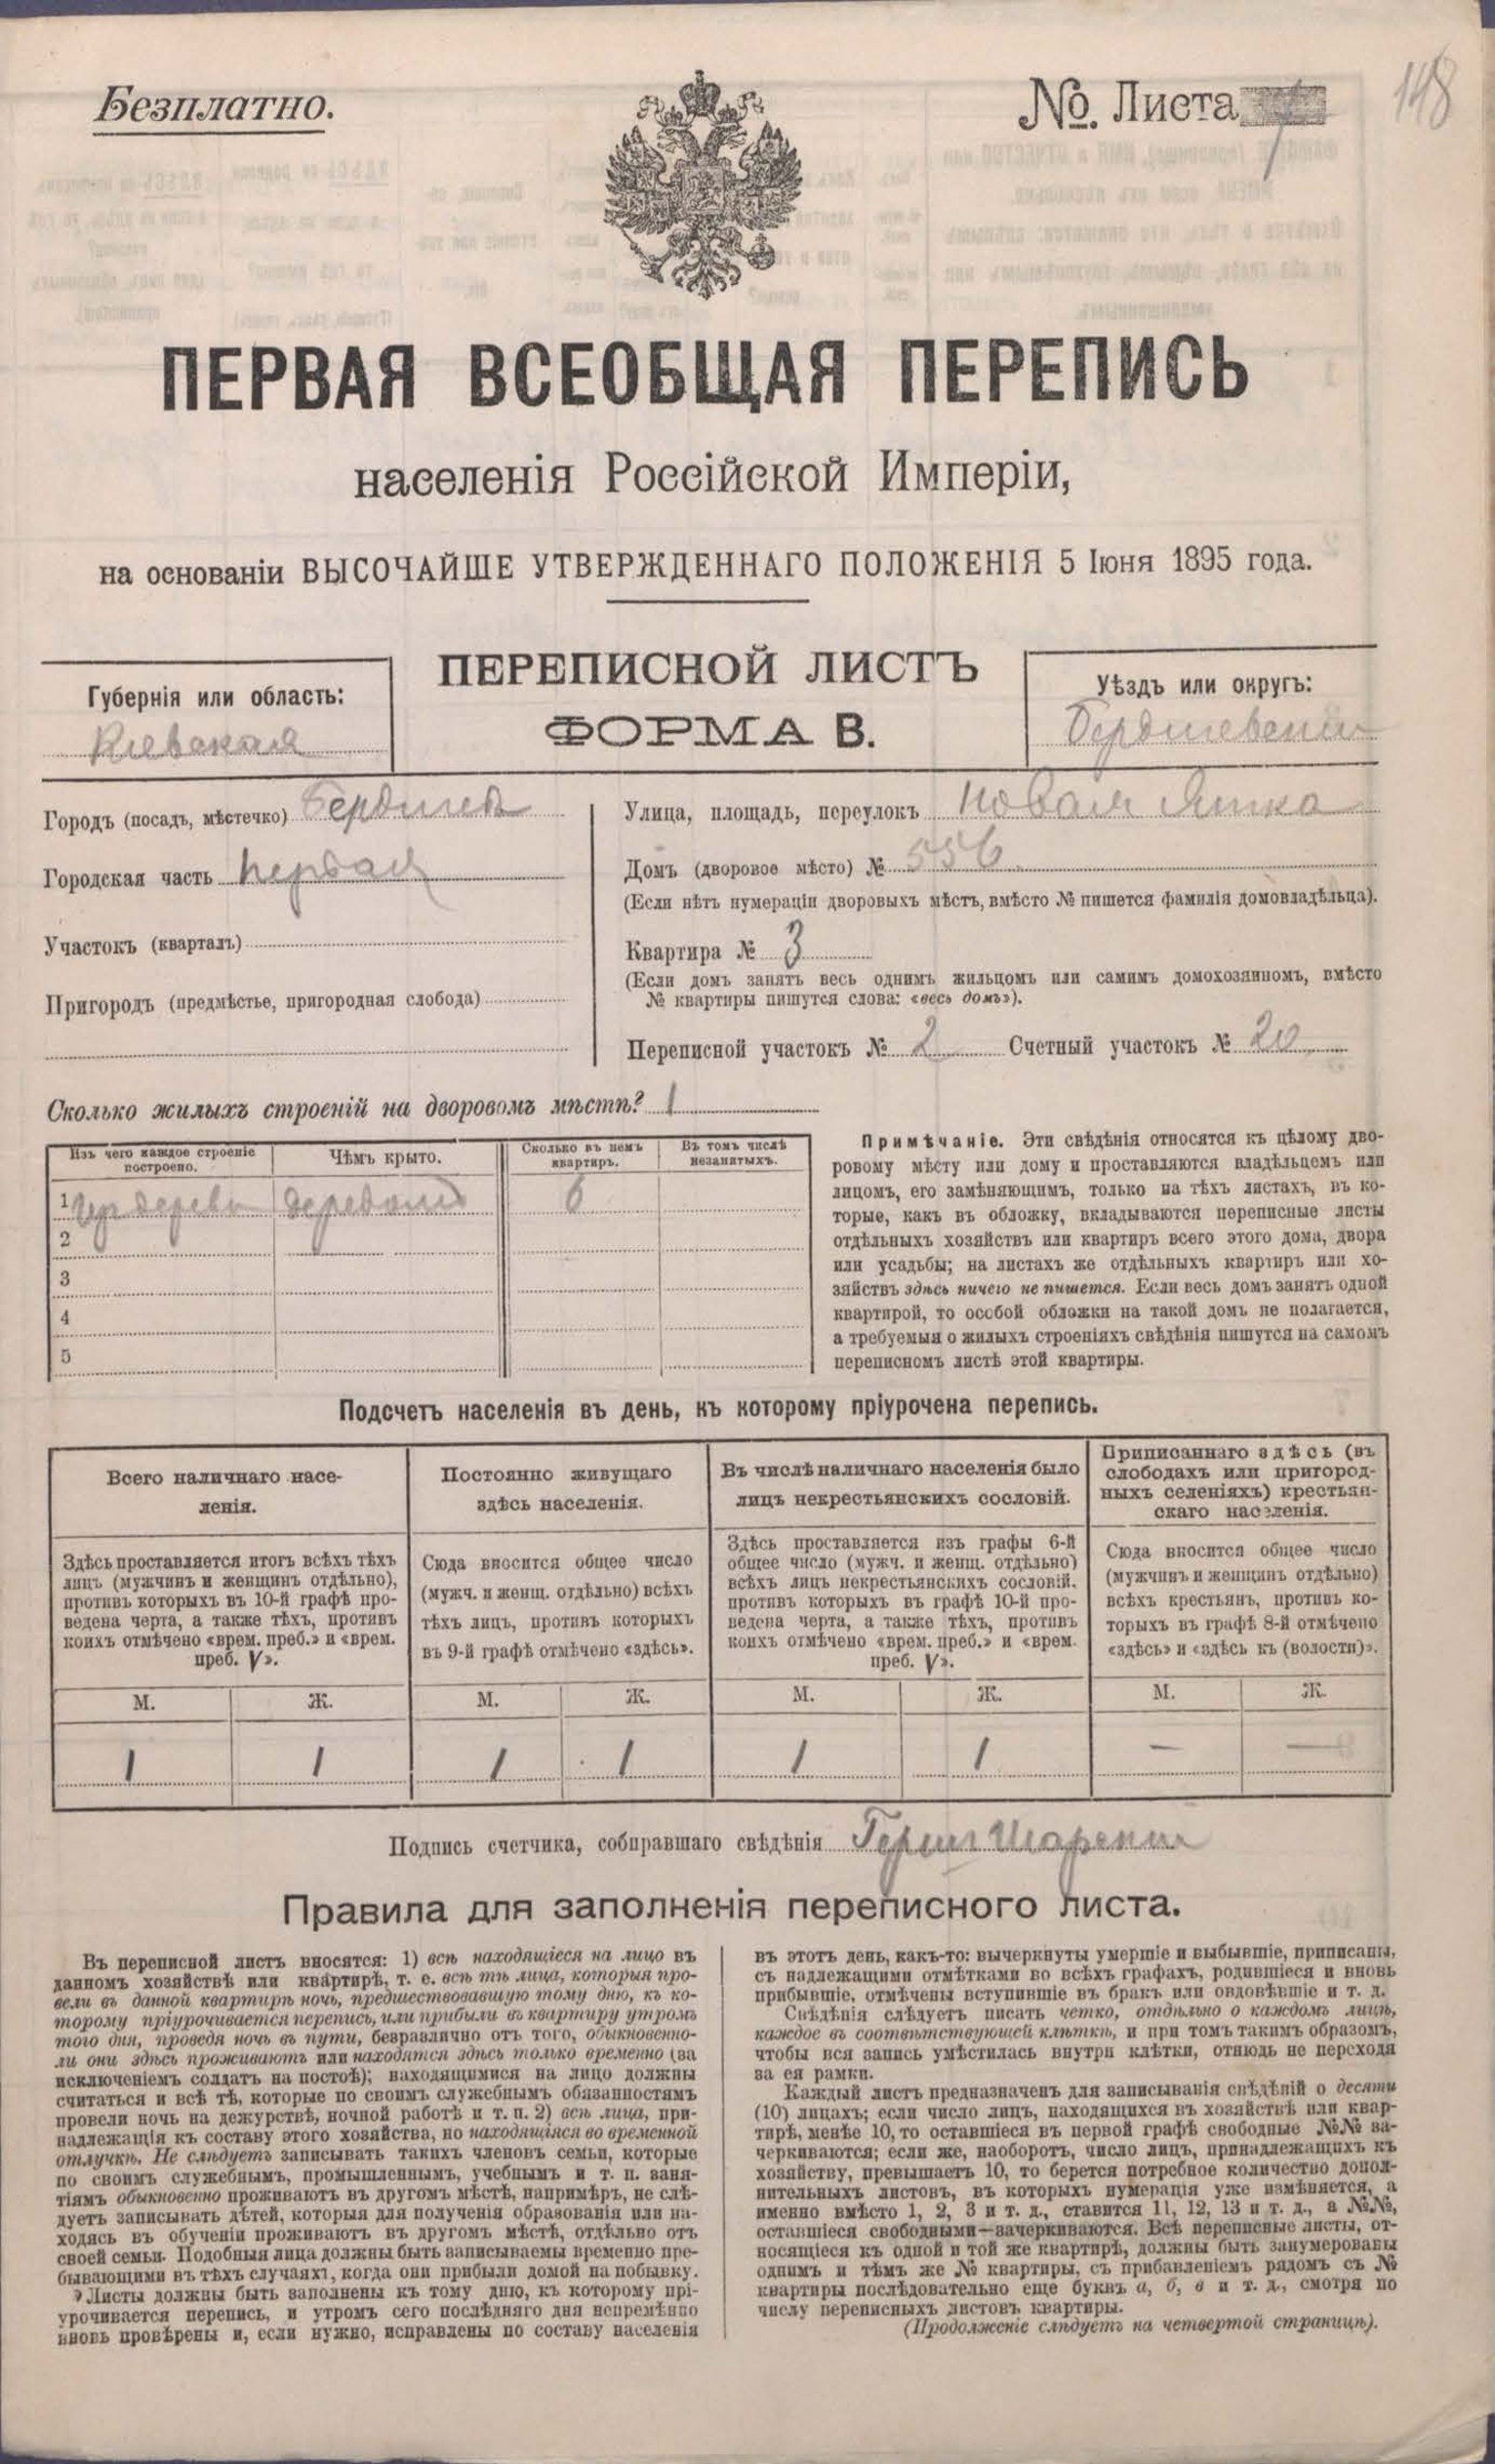 Безплатно.
№ Листа
148
ПЕРВАЯ ВСЕОБЩАЯ ПЕРЕПИСЬ
населенія Россійской Имперіи,
на основаніи ВЫСОЧАЙШЕ УТВЕРЖДЕННАГО ПОЛОЖЕНІЯ 5 Іюня 1895 года.
ПЕРЕПИСНОЙ ЛИСТЪ
ФОРМА В.
Губернія или область:
Кіевская
Уѣздъ или округъ:
Бердичевскій
Городъ (посадъ, мѣстечко) Бердичев
Городская часть первая
Участокъ (кварталъ)
Пригородъ (предмѣстье, пригородная слобода)
Улица, площадь, переулокъ Новая
Домъ (дворовое мѣсто) № 556
(Если нѣтъ нумераціи дворовыхъ мѣстъ, вмѣсто № пишется фамилія домовладѣльца).
Квартира № 3
(Если домъ занятъ весь однимъ жильцомъ или самимъ домохозяиномъ, вмѣсто
№ квартиры пишутся слова: «весь домъ»).
Переписной участокъ № 2 Счетный участокъ № 20
Сколько жилыхъ строеній на дворовомъ мѣстѣ? 1
Изъ чего каждое строеніе
построено.
Чѣмъ крыто.
Сколько въ немъ
квартиръ.
Въ томъ числѣ
незанятыхъ.
1 6
2
3
4
5
Примѣчаніе. Эти свѣдѣнія относятся къ цѣлому дво-
ровому мѣсту или дому и проставляются владѣльцемъ или
лицомъ, его замѣняющимъ, только на тѣхъ листахъ, въ ко-
торые, какъ въ обложку, вкладываются переписные листы
отдѣльныхъ хозяйствъ или квартиръ всего этого дома, двора
или усадьбы; на листахъ же отдѣльныхъ квартиръ или хо-
зяйствъ здѣсь ничего не пишется. Если весь домъ занятъ одной
квартирой, то особой обложки на такой домъ не полагается,
а требуемыя о жилыхъ строеніяхъ свѣдѣнія пишутся на самомъ
переписномъ листѣ этой квартиры.
Подсчетъ населенія въ день, къ которому пріурочена перепись.
Всего наличнаго насе-
ленія.
Постоянно живущаго
здѣсь населенія.
Въ числѣ наличнаго населенія было
лицъ некрестьянскихъ сословій.
Приписаннаго здѣсь (въ
слободахъ или пригород-
ныхъ селеніяхъ) крестьян-
скаго населенія.
Здѣсь проставляется итогъ всѣхъ тѣхъ
лицъ (мужчинъ и женщинъ отдѣльно),
противъ которыхъ въ 10-й графѣ про-
ведена черта, а также тѣхъ, противъ
коихъ отмѣчено «врем. преб.» и «врем.
преб. V».
Сюда вносится общее число
(мужч. и женщ. отдѣльно) всѣхъ
тѣхъ лицъ, противъ которыхъ
въ 9-й графѣ отмѣчено «здѣсь».
Здѣсь проставляется изъ графы 6-й
общее число (мужч. и женщ. отдѣльно)
всѣхъ лицъ некрестьянскихъ сословій,
противъ которыхъ въ графѣ 10-й про-
ведена черта, а также тѣхъ, противъ
коихъ отмѣчено «врем. преб.» и «врем.
преб. V».
Сюда вносится общее число
(мужчинъ и женщинъ отдѣльно)
всѣхъ крестьянъ, противъ ко-
торыхъ въ графѣ 8-й отмѣчено
«здѣсь» и «здѣсь къ (волости)».
М. Ж. М. Ж. М. Ж. М. Ж.
1 1 1 1 1 1 — —
Подпись счетчика, собиравшаго свѣдѣнія
Правила для заполненія переписного листа.
Въ переписной листъ вносятся: 1) всѣ находящіеся на лицо въ
данномъ хозяйствѣ или квартирѣ, т. е. всѣ тѣ лица, которыя про-
вели въ данной квартирѣ ночь, предшествовавшую тому дню, къ ко-
торому пріурочивается перепись, или прибыли въ квартиру утромъ
того дня, проведя ночь въ пути, безразлично отъ того, обыкновенно-
ли они здѣсь проживаютъ или находятся здѣсь только временно (за
исключеніемъ солдатъ на постоѣ); находящимися на лицо должны
считаться и всѣ тѣ, которые по своимъ служебнымъ обязанностямъ
провели ночь на дежурствѣ, ночной работѣ и т. п. 2) всѣ лица, при-
надлежащія къ составу этого хозяйства, но находящіяся во временной
отлучкѣ. Не слѣдуетъ записывать такихъ членовъ семьи, которые
по своимъ служебнымъ, промышленнымъ, учебнымъ и т. п. заня-
тіямъ обыкновенно проживаютъ въ другомъ мѣстѣ, напримѣръ, не слѣ-
дуетъ записывать дѣтей, которыя для полученія образованія или на-
ходясь въ обученіи проживаютъ въ другомъ мѣстѣ, отдѣльно отъ
своей семьи. Подобныя лица должны быть записываемы временно пре-
бывающими въ тѣхъ случаяхъ, когда они прибыли домой на побывку.
Листы должны быть заполнены къ тому дню, къ которому прі-
урочивается перепись, и утромъ сего послѣдняго дня непремѣнно
вновь провѣрены и, если нужно, исправлены по составу населенія
въ этотъ день, какъ-то: вычеркнуты умершіе и выбывшіе, приписаны,
съ надлежащими отмѣтками во всѣхъ графахъ, родившіеся и вновь
прибывшіе, отмѣчены вступившіе въ бракъ или овдовѣвшіе и т. д.
Свѣдѣнія слѣдуетъ писать четко, отдѣльно о каждомъ лицѣ,
каждое въ соотвѣтствующей клѣткѣ, и при томъ такимъ образомъ,
чтобы вся запись умѣстилась внутри клѣтки, отнюдь не переходя
за ея рамки.
Каждый листъ предназначенъ для записыванія свѣдѣній о десяти
(10) лицахъ; если число лицъ, находящихся въ хозяйствѣ или квар-
тирѣ, менѣе 10, то оставшіеся въ первой графѣ свободные №№ за-
черкиваются; если же, наоборотъ, число лицъ, принадлежащихъ къ
хозяйству, превышаетъ 10, то берется потребное количество допол-
нительныхъ листовъ, въ которыхъ нумерація уже измѣняется, а
именно вмѣсто 1, 2, 3 и т. д., ставится 11, 12, 13 и т. д., а №№,
оставшіеся свободными—зачеркиваются. Всѣ переписные листы, от-
носящіеся къ одной и той же квартирѣ, должны быть занумерованы
однимъ и тѣмъ же № квартиры, съ прибавленіемъ рядомъ съ №
квартиры послѣдовательно еще буквъ а, б, в и т. д., смотря по
числу переписныхъ листовъ квартиры.
(Продолженіе слѣдуетъ на четвертой страницѣ).